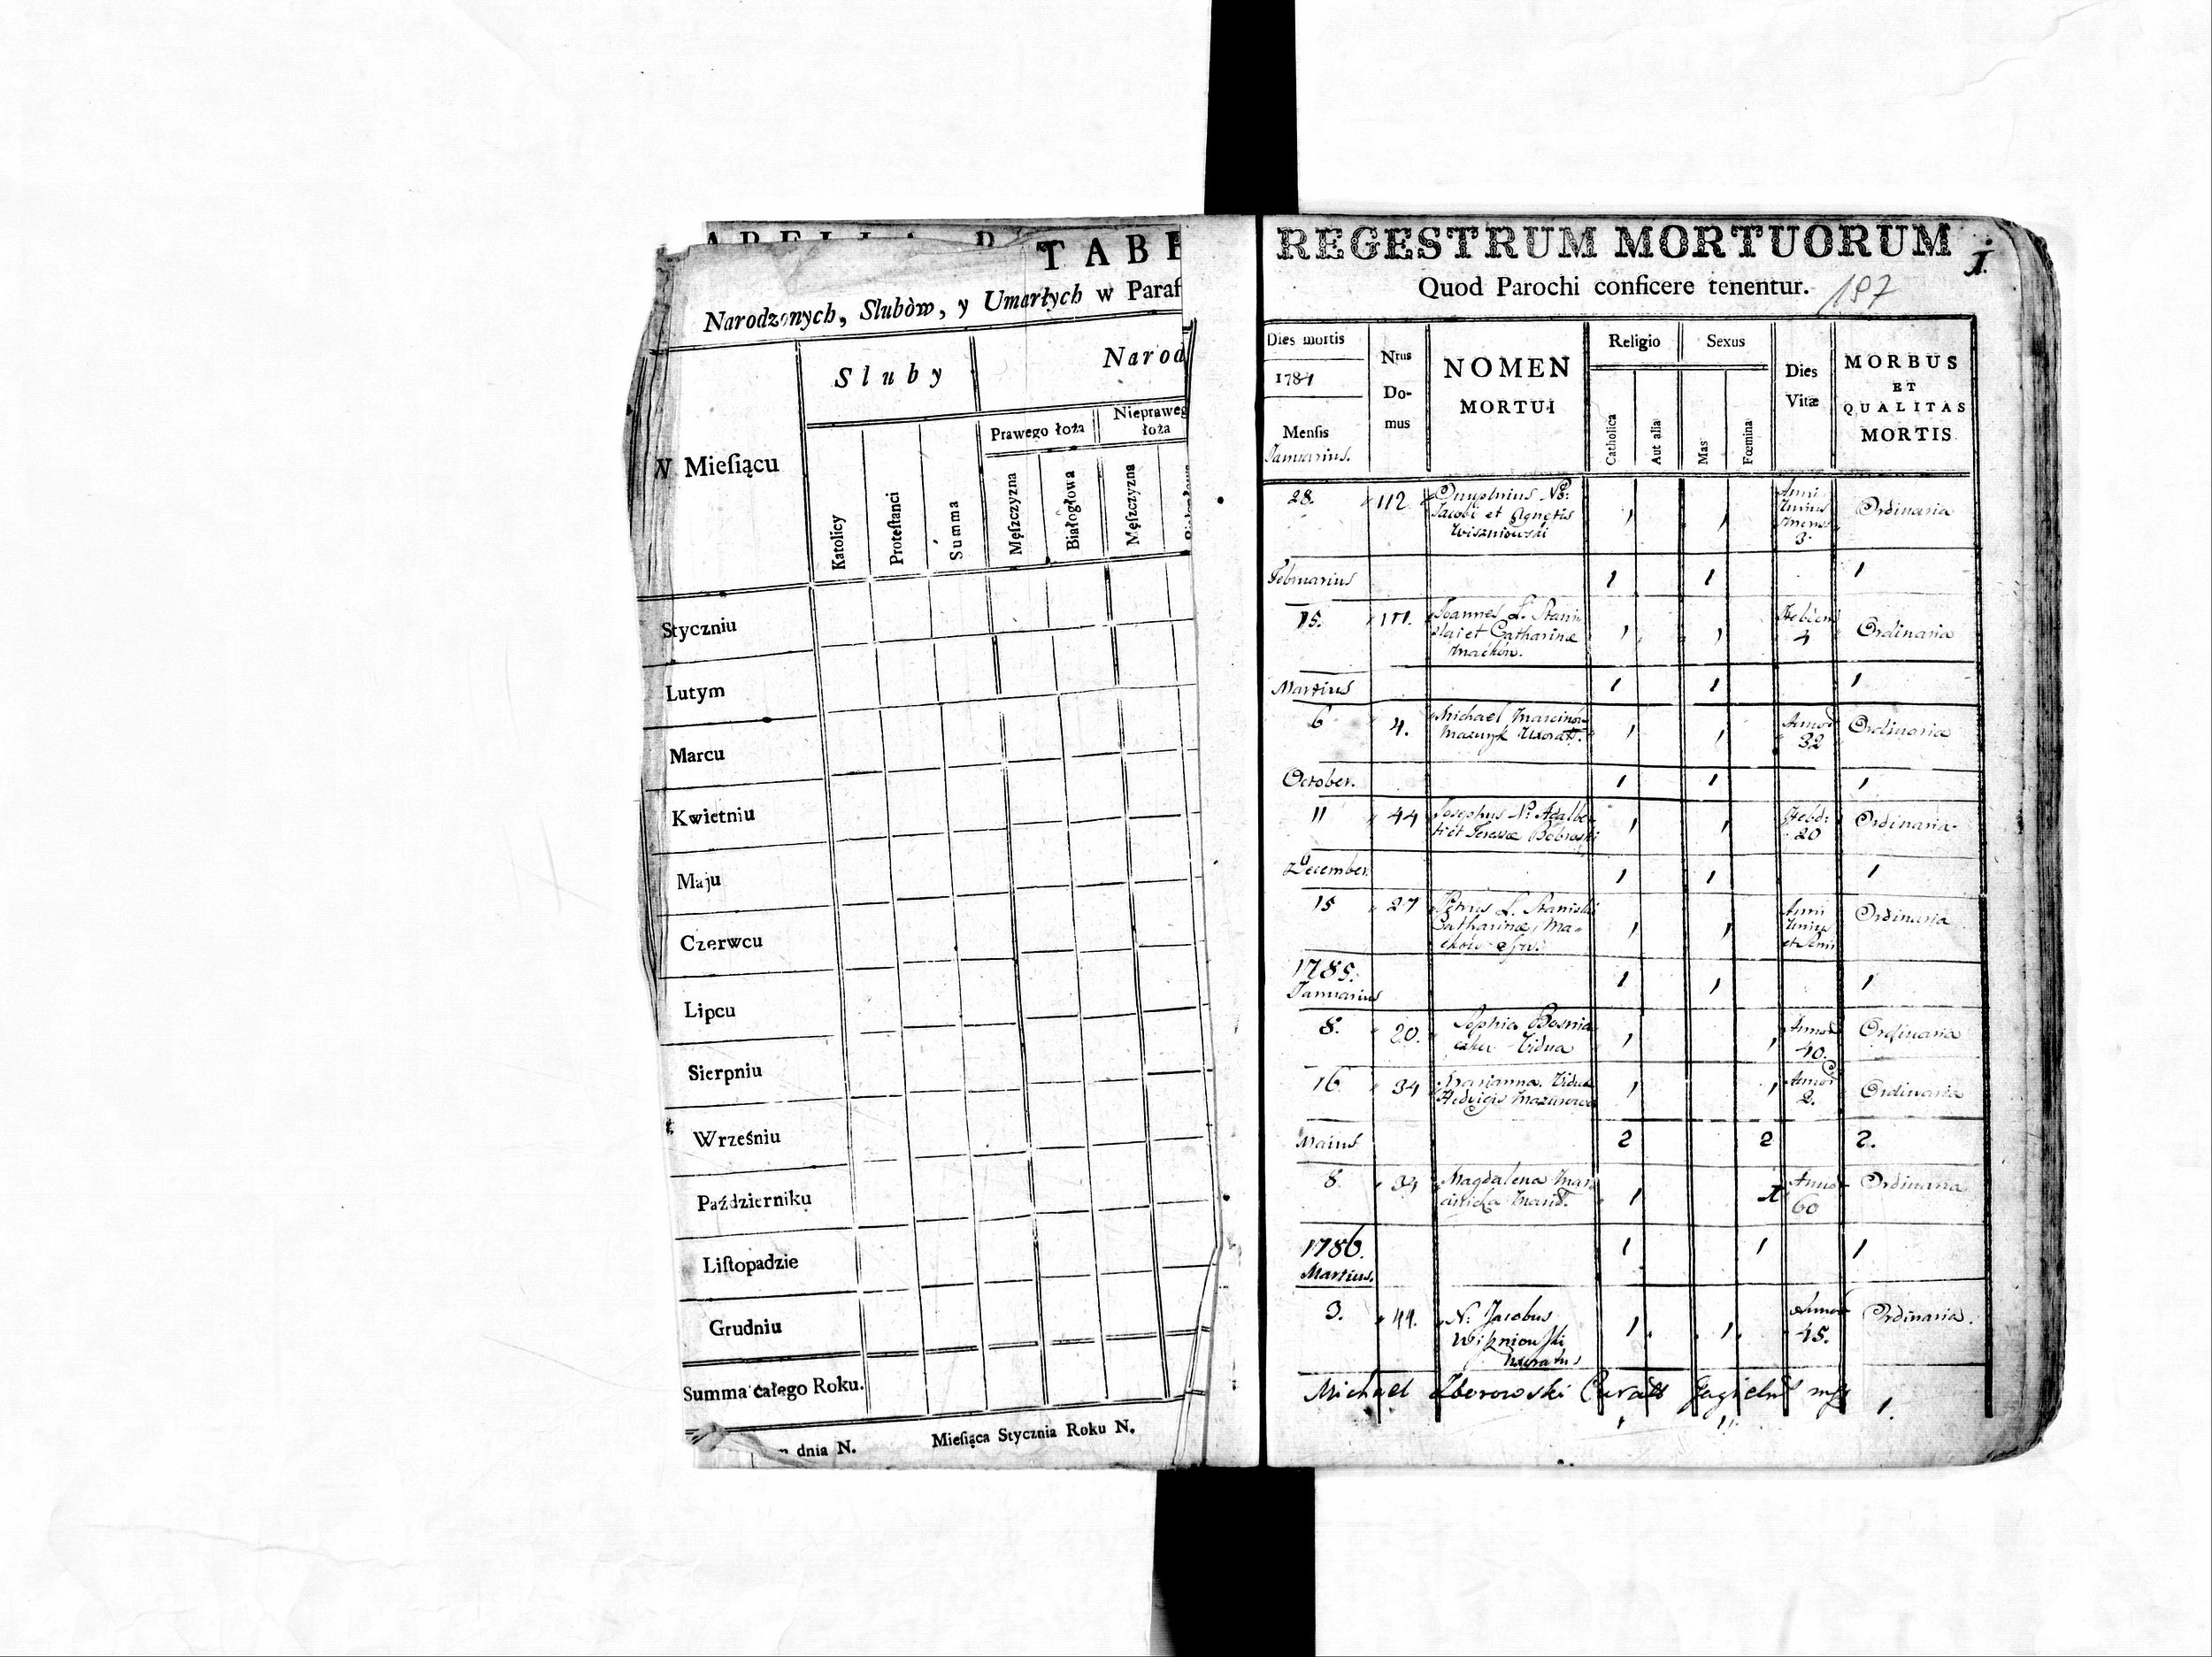 TABE
Narodzonych, Slubòw, y Umarłych w Paraf
W Mieſiącu
Sluby
Narod
Prawego łoża
Niepraweg
łoża
Katolicy
Proteſtanci
Summa
Męſzczyzna
Białogłowa
Męſzczyzna
Styczniu
Lutym
Marcu
Kwietniu
Maju
Czerwcu
Lipcu
Sierpniu
Wrześniu
Październiku
Liſtopadzie
Grudniu
Summa całego Roku.
dnia N. Mieſiąca Stycznia Roku N.
REGESTRUM MORTUORUM
1.
Quod Parochi conficere tenentur.
187
Dies mortis
1784
Menſis
Januarius.
Nrus
Do-
mus
NOMEN
MORTUI
Religio
Catholica
Aut alia
Sexus
Mas
Fœmina
Dies
Vitæ
MORBUS
ET
QUALITAS
MORTIS
28. 112. Onuphrius N:
Jacobi et Agnetis
Wiszniowski
1 1
Anni
Unius
Mens
3.
Ordinaria
Februarius 1 1 1
15. 111. Joannes L. Stani
slai et Catharinæ
Maćków.
1 1
4
Ordinaria
Martius 1 1 1
6 4. Michael Marcinów
Mazuryk Uxorat.
1 1
Annor
32
Ordinaria
October. 1 1 1
11 44 Josephus N: Adalber
ti et Teresæ Bobroski
1 1
Hebd:
20
Ordinaria
December 1 1 1
15 27 Petrus L. Stanislai
Catharinæ Ma-
ćków
1 1
Anni
Unius
et Semi
Ordinaria
1785.
Januarius 1 1 1
8. 20. Sophia Bosnia
Vidua
1 1
Annor
40.
Ordinaria
16. 34 Marianna Vidua
Hedvigis Mazurowa
1 1
Annor
2.
Ordinaria
Maius 2 2 2.
8. 34 Magdalena
1 1
Annor
60
Ordinaria
1786. 1 1 1
Martius.
3. 44. N: Jacobus
Wiszniowski
Uxoratus
1. 1.
Annor
45.
Ordinaria.
Michael Zborowski
1 1. 1.